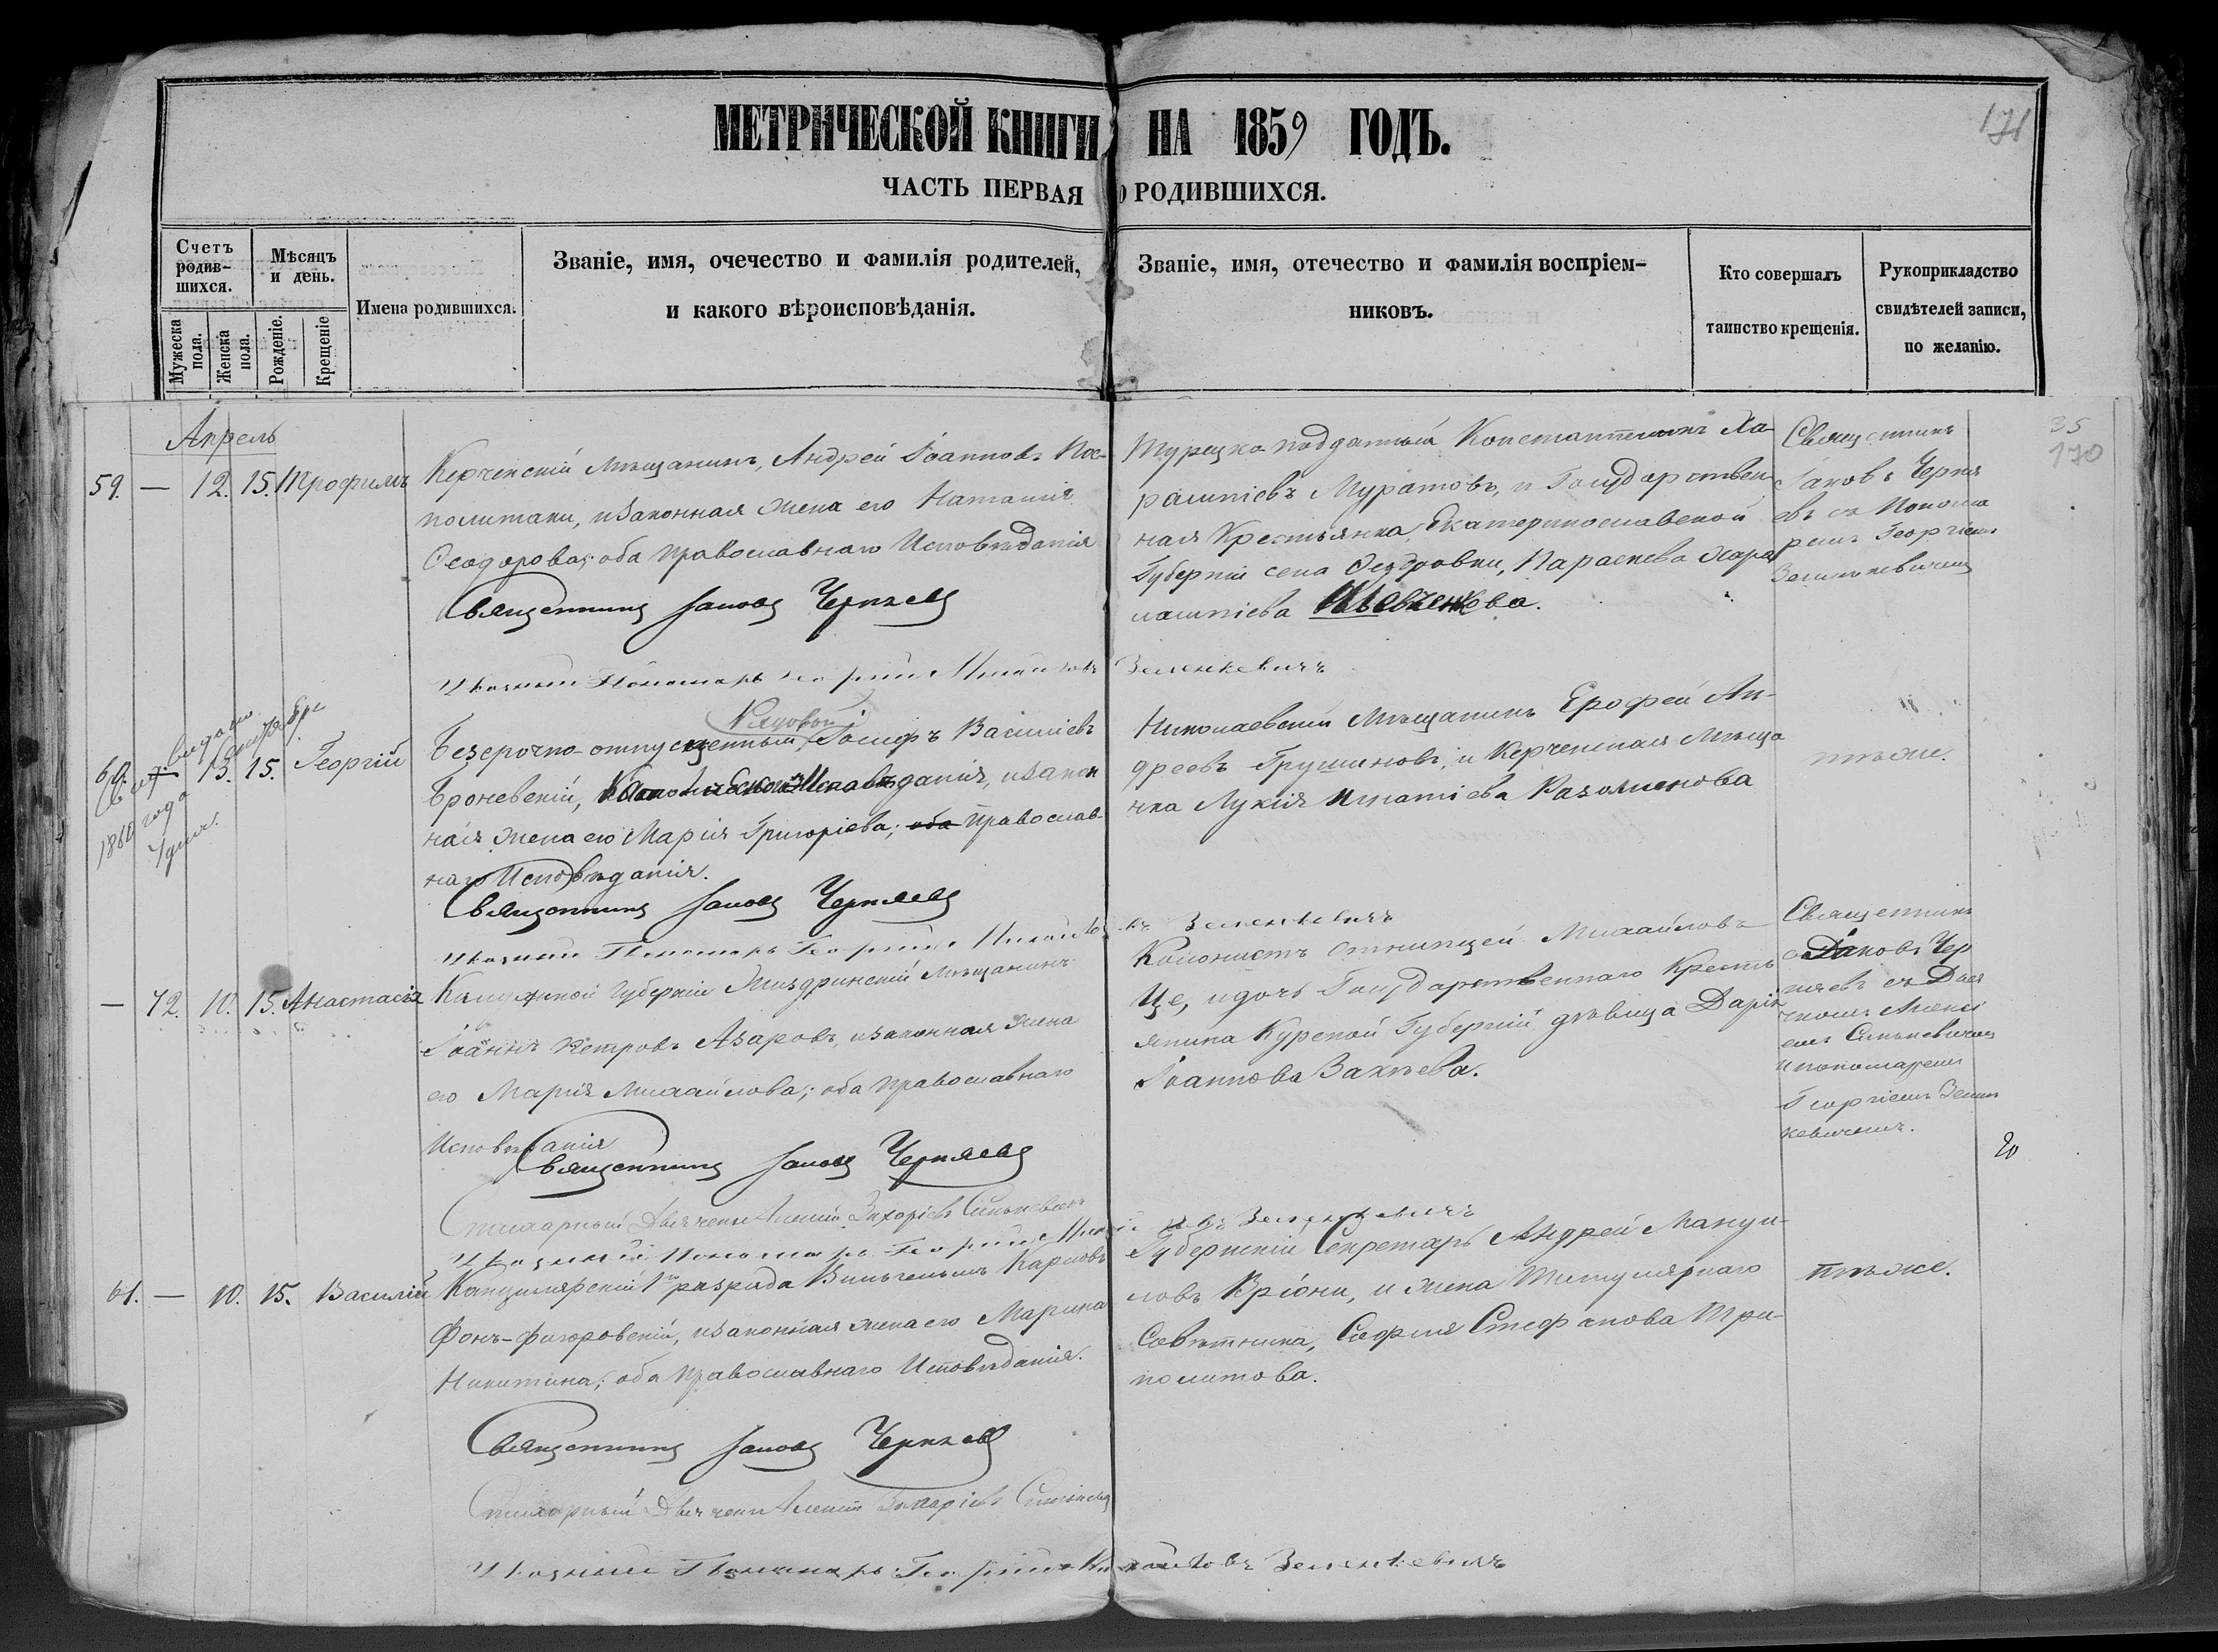 МЕТРИЧЕСКОЙ КНИГИ НА 1859 ГОДЪ.
171
ЧАСТЬ ПЕРВАЯ О РОДИВШИХСЯ.
Счетъ родив-шихся.
Мужеска пола.
Женска пола.
Мѣсяцъ и день.
Рожденіе.
Крещеніе
Имена родившихся.
Званіе, имя, очечество и фамилія родителей,
и какого вѣроисповѣданія.
Званіе, имя, отечество и фамилія воспріем-
никовъ.
Кто совершалъ
таинство крещенія.
Рукоприкладство
свидѣтелей записи,
по желанію.
Апрель
35
170
59. — 12. 15. Трофимъ
Керченскій Мѣщанинъ, Андрей Іоанновъ Кос-
политаки, и законная жена его Наталія
Ѳеодорова; оба Православнаго Исповѣданія
Священникъ Іаковъ Черняевъ
Указный Пономарь Георгій Михайловъ Зеленкевичъ
Турецко подданный Константинъ Ха-
рлампіевъ Муратовъ, и Государствен-
ная Крестьянка Екатеринославской
Губерніи села Ѳедоровки, Параскева Хара
лампіева Шевченкова.
Священникъ
Іаковъ Черня
евъ съ Понома
ремъ Георгіемъ
Зеленкевичемъ
60. — 13. 15. Георгій
1860 года
Рядовой
Безсрочно-отпускенный, Іосифъ Василіевъ
Броневскій, Исповѣданія, и закон
ная жена его Марія Григоріева; оба Православ-
наго Исповѣданія.
Священникъ Іаковъ Черняевъ
Указный Пономарь Георгій Михайловъ Зеленкевичъ
Николаевскій Мѣщанинъ Ерофей Ан-
дреевъ Грушиновъ, и Керченская Мѣща
нка Лукія Игнатіева Разоменова
тѣже.
— 42. 10. 15. Анастасія
Калужской Губерніи Мѣщанинъ
Іоаннъ Петровъ Азаровъ, и законная жена
его Марія Михайлова; оба Православнаго
Исповѣданія
Священникъ Іаковъ Черняевъ
Стихарный Дьячекъ Алексій Захаріевъ Синькевичъ
Указный Пономарь Георгій Михайловъ Зеленкевичъ
Колонистъ Михайловъ
Це, и дочь Государственнаго Кресть
янина Курской Губерніи дѣвица Дарія
Іоаннова Вахнева.
Священникъ
Іаковъ Чер
няевъ съ Дья
чкомъ Алексі
емъ Синькевичемъ
и пономаремъ
Георгіемъ Зелен
кевичемъ.
20
61. — 10. 15. Василій
Канцелярскій 1го разряда Вильгельмъ Карловъ
Фонъ-Фигоровскій, и законная жена его Марина
Никитина; оба Православнаго Исповѣданія.
Священникъ Іаковъ Черняевъ
Стихарный Дьячекъ Алексій Захаріевъ Синькевичъ
Указный Пономарь Георгій Михайловъ Зеленкевичъ
Губернскій Секретарь Андрей Мануи-
ловъ Вріони, и жена Титулярнаго
Совѣтника, Софія Стефанова Три-
политова.
тѣже.